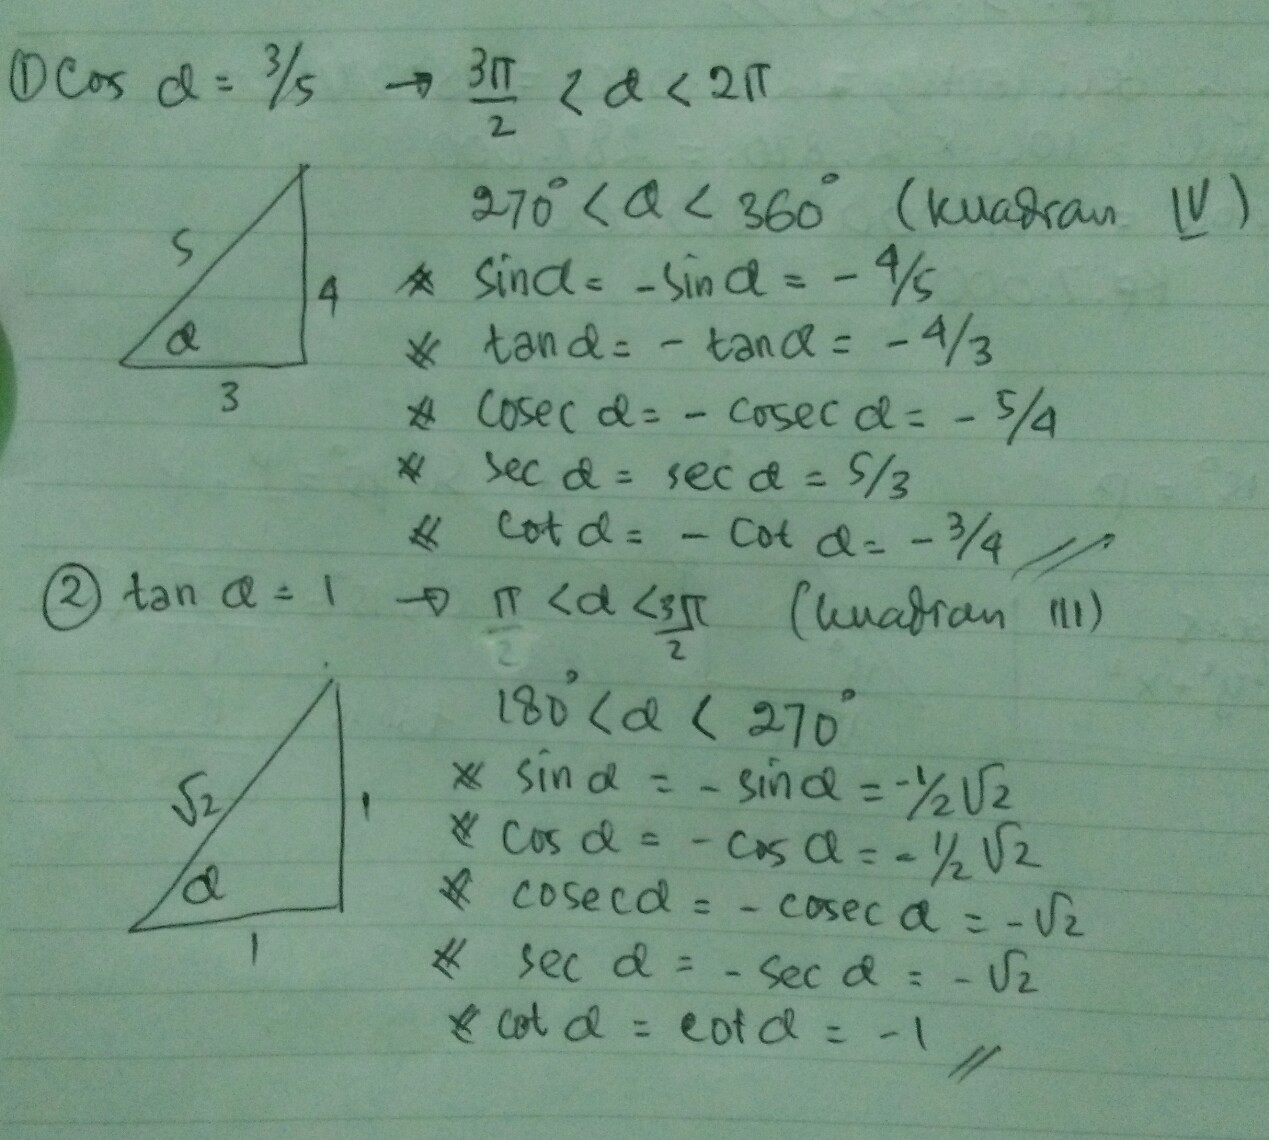 ① Cos α = 3/5 → 3π/2 < α < 2π
270° < α < 360° (kuadran IV)
5
4
α
3
* sin α = - sin α = - 4/5
* tan α = - tan α = - 4/3
* Cosec α = - cosec α = - 5/4
* sec α = sec α = 5/3
* cot α = - cot α = - 3/4 //
② tan α = 1 → π < α < 3π/2 (kuadran III)
180° < α < 270°
√2
1
α
1
* sin α = - sin α = -1/2 √2
* cos α = - cos α = - 1/2 √2
* cosec α = - cosec α = - √2
* sec α = - sec α = - √2
* cot α = cot α = - 1 //